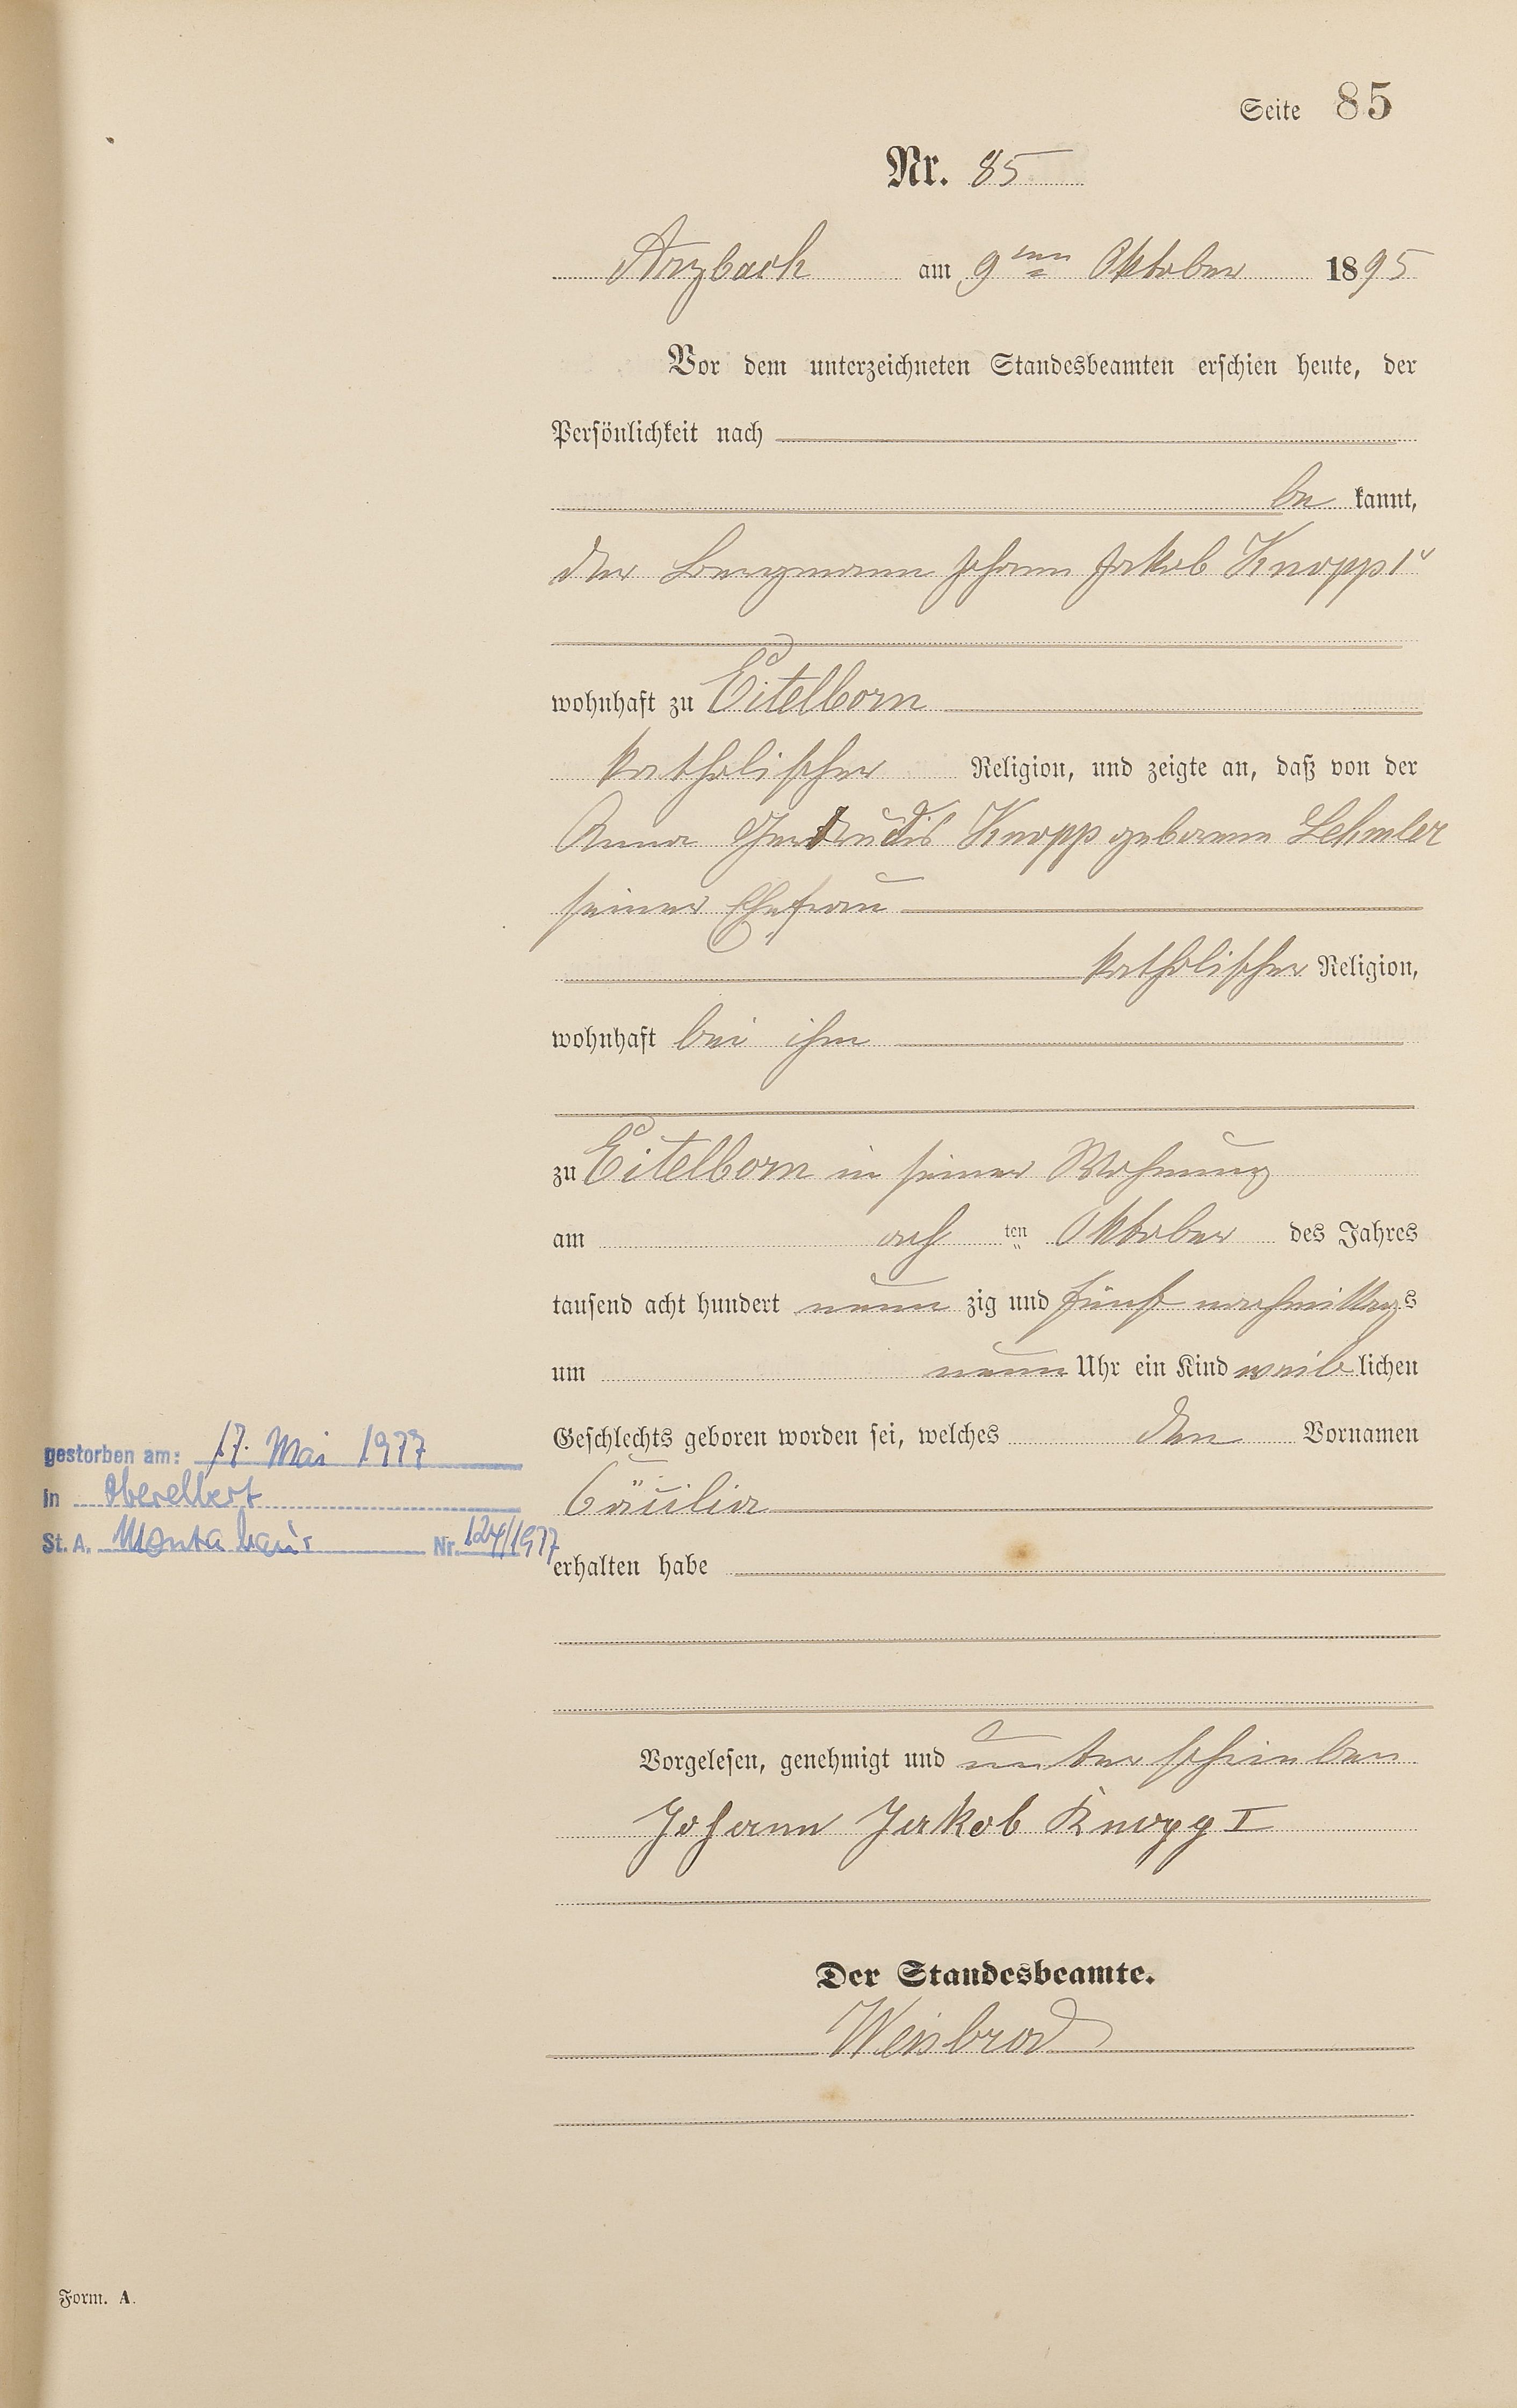 Seite 85
Nr. 85
Arzbach am 9ten Oktober 1895
Vor dem unterzeichneten Standesbeamten erschien heute, der
Persönlichkeit nach
be kannt,
der Bergmann Johann Jakob Knopp 1r
wohnhaft zu Eitelborn
katholischer Religion, und zeigte an, daß von der
Anna Gertrudis Knopp geborene Lehmler
seiner Ehefrau
katholischer Religion,
wohnhaft bei ihm
zu Eitelborn in seiner Wohnung
am ach ten Oktober des Jahres
tausend acht hundert neun zig und fünf nachmittags
um neun Uhr ein Kind weib lichen
Geschlechts geboren worden sei, welches den Vornamen
gestorben am: 17. Mai 1977
in Oberelbert
Cäcilia
St. A. Montabaur Nr. 124/1977
erhalten habe
Vorgelesen, genehmigt und unterschrieben
Johann Jakob Knopp I
Der Standesbeamte.
Weisbrod
Form. A.